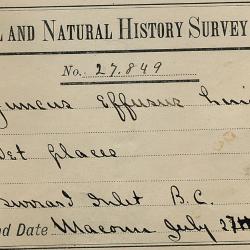 L AND NATURAL HISTORY SURVEY
No. 27.849
Juncus Effusus Lin
Wet places
Burrard Inlet B.C.
nd Date Macoun July 27th